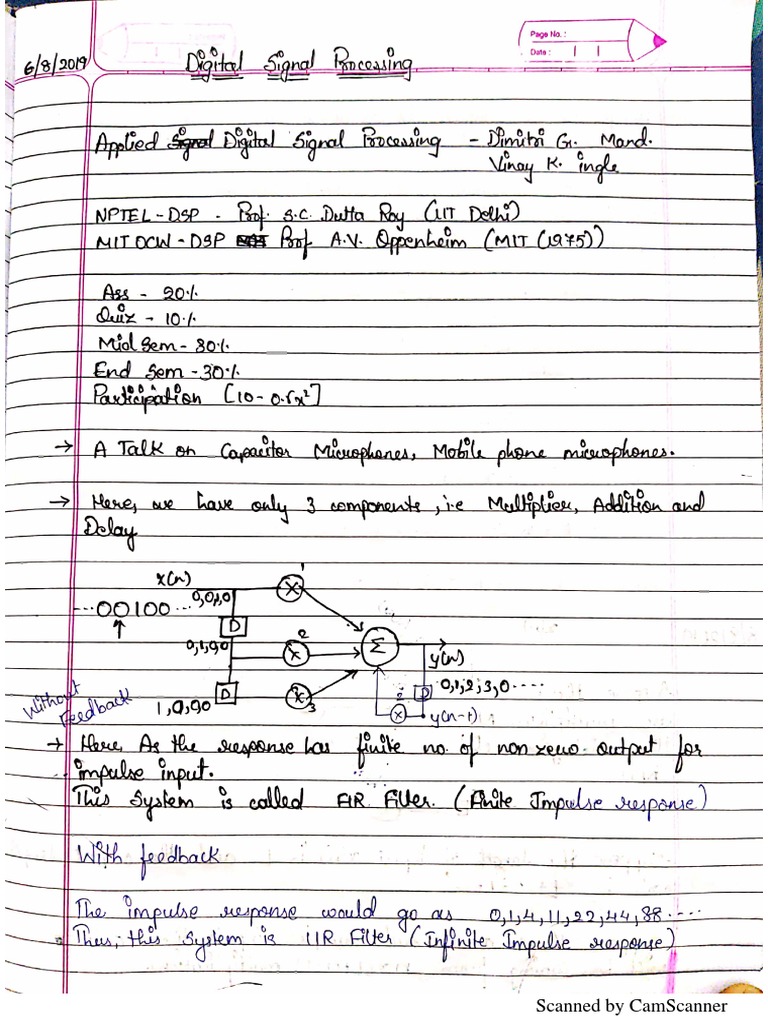 Page No.:
Date:
6/8/2019
Digital Signal Processing
Applied Signal Digital Signal Processing - Dimitri G. Mand.
Vinay K. ingle
NPTEL - DSP - Prof. S.C. Dutta Roy (IIT Delhi)
MIT OCW - DSP Prof A.V. Oppenheim (MIT (1975))
Ass - 20%
Quiz - 10%
Mid Sem - 30%
End Sem - 30%
Participation [10 - 0.5x²]
→ A Talk on Capacitor Microphones, Mobile phone microphones.
→ Here, we have only 3 components, i.e Multiplier, Addition and
Delay
x(n)
...00100...
↑
0,0,1,0
D
0,1,0,0
D
1,0,0,0
X 1
X 2
X 3
Σ
y(n)
0,1,2,3,0....
D
X 2
y(n-1)
Without
Feedback
→ Here, As the response has finite no. of non zero output for
impulse input.
This System is called FIR Filter. (Finite Impulse response)
With feedback
The impulse response would go as 0,1,4,11,22,44,88....
Thus, this System is IIR Filter (Infinite Impulse response)
Scanned by CamScanner